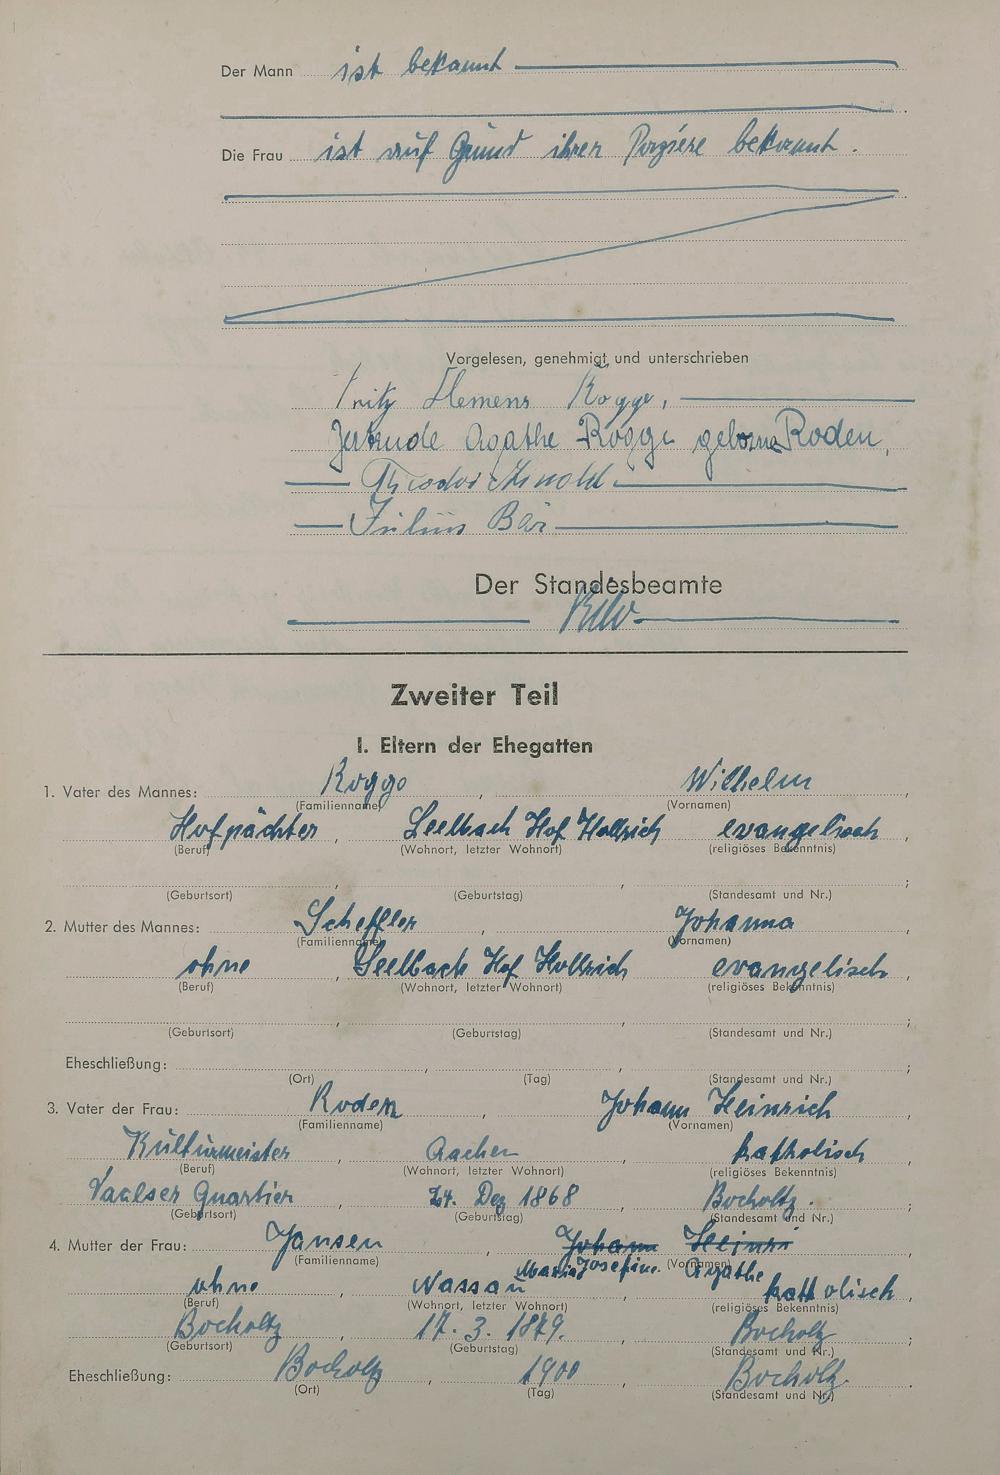 Der Mann ist bekannt
Die Frau ist auf Grund ihrer Papiere bekannt.
Vorgelesen, genehmigt und unterschrieben
Fritz Klemens Rogge,
Gertrude Agathe Rogge geborne Roden,
Theodor Arnold
Julius Bär
Der Standesbeamte
Zweiter Teil
I. Eltern der Ehegatten
1. Vater des Mannes: Rogge, Wilhelm,
(Familienname) (Vornamen)
Hofpächter, Seelbach Hof Hollrich evangelisch,
(Beruf) (Wohnort, letzter Wohnort) (religiöses Bekenntnis)
, , ;
(Geburtsort) (Geburtstag) (Standesamt und Nr.)
2. Mutter des Mannes: Scheffler, Johanna,
(Familienname) (Vornamen)
ohne, Seelbach Hof Hollrich evangelisch,
(Beruf) (Wohnort, letzter Wohnort) (religiöses Bekenntnis)
, , ;
(Geburtsort) (Geburtstag) (Standesamt und Nr.)
Eheschließung: , , ;
(Ort) (Tag) (Standesamt und Nr.)
3. Vater der Frau: Roden, Johann Heinrich,
(Familienname) (Vornamen)
Kulturmeister, Aachen, katholisch,
(Beruf) (Wohnort, letzter Wohnort) (religiöses Bekenntnis)
Vaalser Quartier, 24. Dez 1868, Bocholtz.;
(Geburtsort) (Geburtstag) (Standesamt und Nr.)
4. Mutter der Frau: Jansen, Johann Heinri,
(Familienname) (Vornamen)
Maria Josefine Agathe
ohne, Nassau, katholisch,
(Beruf) (Wohnort, letzter Wohnort) (religiöses Bekenntnis)
Bocholtz, 17. 3. 1879., Bocholtz;
(Geburtsort) (Geburtstag) (Standesamt und Nr.)
Eheschließung: Bocholtz, 1900, Bocholtz.
(Ort) (Tag) (Standesamt und Nr.)